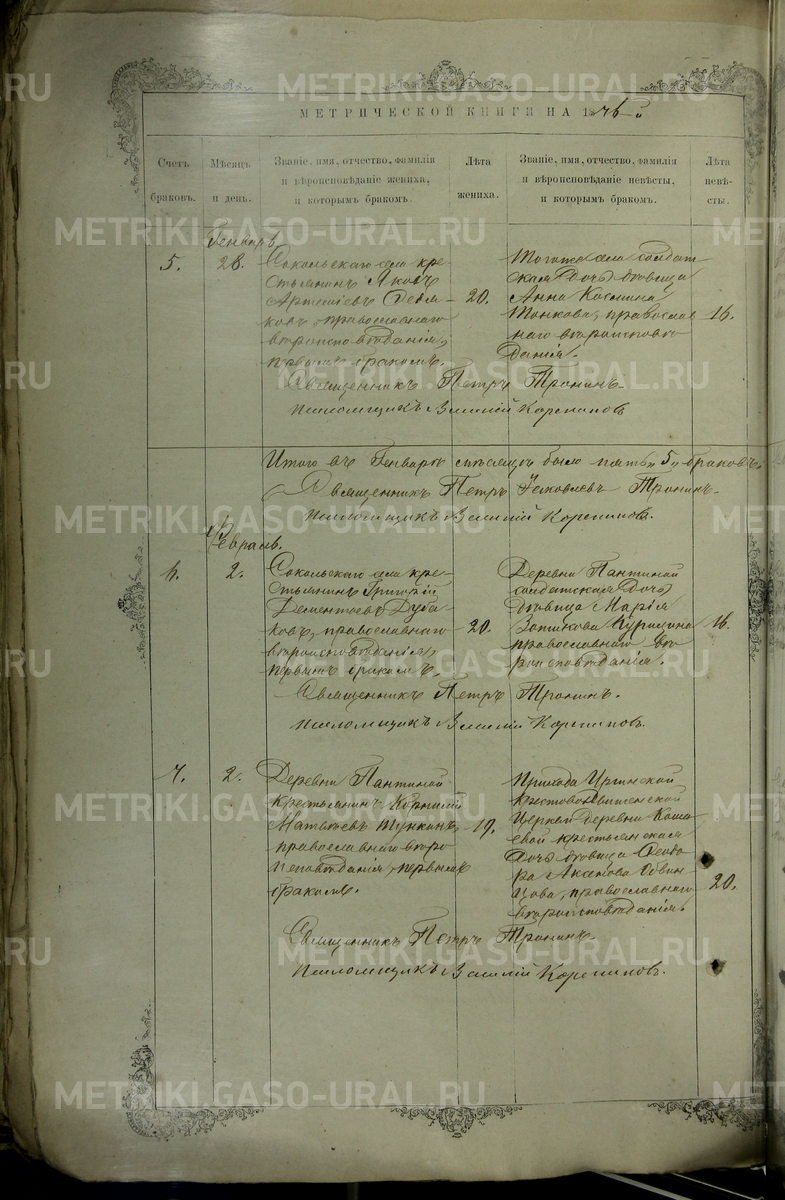 МЕТРИЧЕСКОЙ КНИГИ НА 1876 й
Счетъ браковъ.
Мѣсяцъ и день.
Званіе, имя, отчество, фамилія и вѣроисповѣданіе жениха, и которымъ бракомъ.
Лѣта жениха.
Званіе, имя, отчество, фамилія и вѣроисповѣданіе невѣсты, и которымъ бракомъ.
Лѣта невѣсты.
Генварь
5.
28.
Сокольскаго села кре-
стьянинъ Яковъ
Артемьевъ
православнаго
вѣроисповѣданія,
первымъ бракомъ.
20.
Тогоже села солдат-
ская дочь дѣвица
Анна Космина
Тонкова, православ
наго вѣроисповѣ
данія.
16.
Священникъ Петръ Тронинъ.
Псаломщикъ Василій Корепановъ
Итого въ Генварѣ мѣсяцѣ было пять "5" браковъ.
Священникъ Петръ Яковлевъ Тронинъ.
Псаломщикъ Василій Корепановъ.
Февраль.
6.
2.
Сокольскаго села кре-
стьянинъ Григорій
Дементьевъ Дуба-
ковъ, православнаго
вѣроисповѣданія,
первымъ бракомъ.
20.
Деревни Пантиной
солдатская дочь
дѣвица Марія
Зотикова Курицина
православнаго вѣ
роисповѣданія.
16.
Священникъ Петръ Тронинъ.
Псаломщикъ Василій Корепановъ.
7.
2.
Деревни Пантиной
крестьянинъ Корнилій
Матвѣевъ
православнаго вѣро
исповѣданія, первымъ
бракомъ.
19.
Прихода Иргинской
Крестовоздвиженской
церкви деревни
крестьянская
дочь дѣвица Ѳеодо
ра Аксенова
православнаго
вѣроисповѣданія.
20.
Священникъ Петръ Тронинъ.
Псаломщикъ Василій Корепановъ.
METRIKI.GASO-URAL.RU